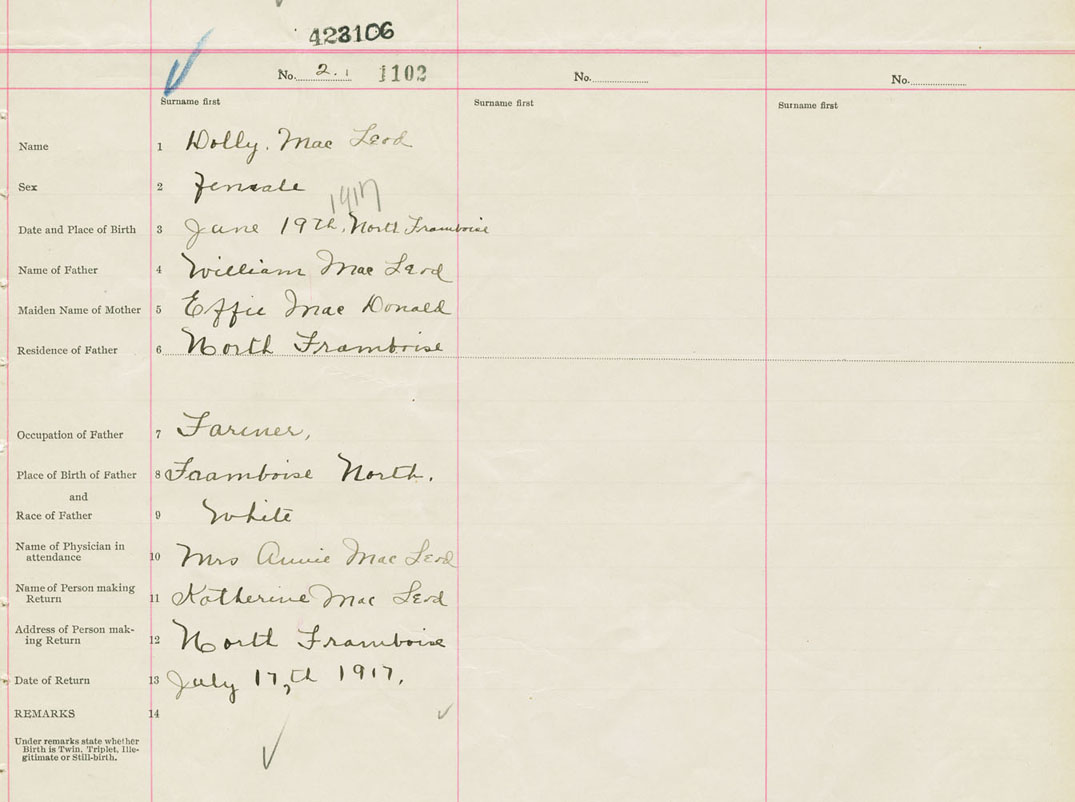 423106
No. 2. 1 1102
No.
No.
Surname first
Surname first
Surname first
Name 1 Dolly. Mac Leod
Sex 2 Female
1917
Date and Place of Birth 3 June 19th, North Framboise
Name of Father 4 William Mac Leod
Maiden Name of Mother 5 Effie Mac Donald
Residence of Father 6 North Framboise
Occupation of Father 7 Farmer,
Place of Birth of Father 8 Framboise North.
and
Race of Father 9 White
Name of Physician in
attendance 10 Mrs Annie Mac Leod
Name of Person making
Return 11 Katherine Mac Leod
Address of Person mak-
ing Return 12 North Framboise
Date of Return 13 July 17,th 1917.
REMARKS 14
Under remarks state whether
Birth is Twin, Triplet, Ille-
gitimate or Still-birth.